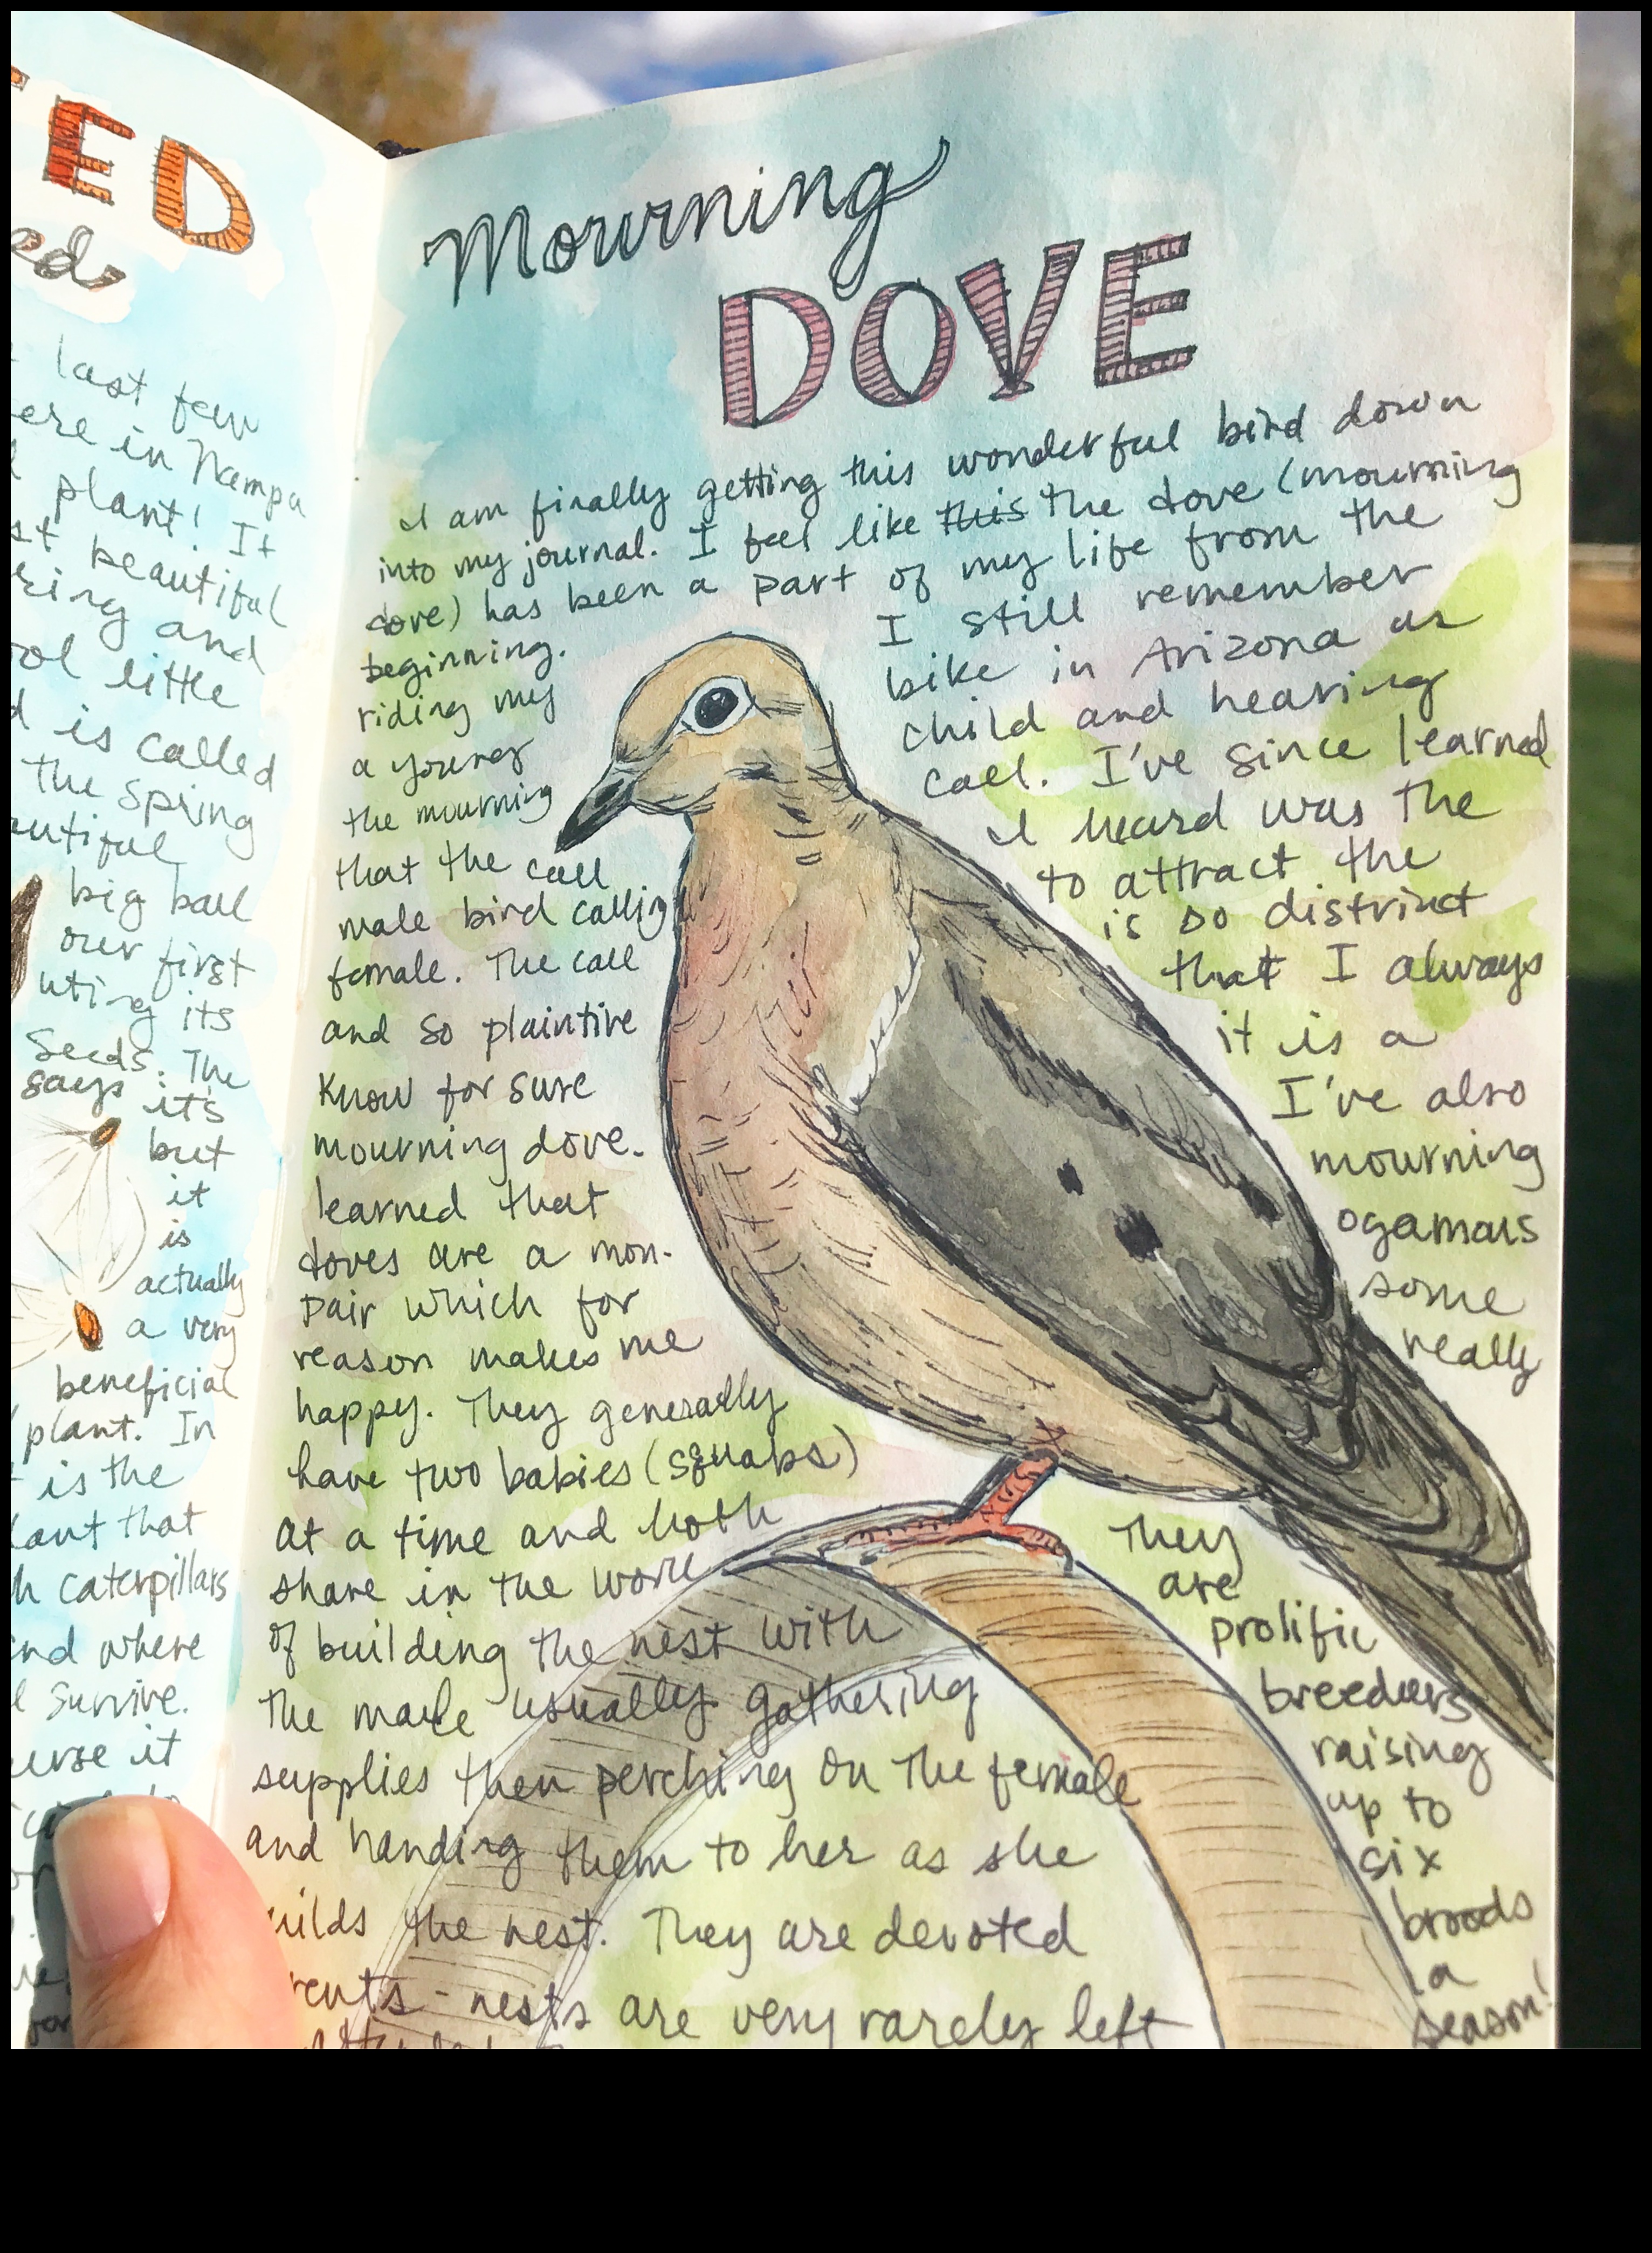 ED
last few
ere in Nampa
plant! It
st beautiful
ring and
ol little
d is called
The Spring
autiful
big ball
our first
uting its
Seeds. The
says it's
but
it
is
actually
a very
beneficial
plant. In
is the
lant that
h caterpillars
nd where
l survive.
urse it
Mourning
DOVE
I am finally getting this wonderful bird down
into my journal. I feel like this the dove (mourning
dove) has been a part of my life from the
beginning. I still remember
riding my bike in Arizona as
a young child and hearing
the mourning call. I've since learned
that the call I heard was the
male bird callig to attract the
female. The call is so distrinct
and so plaintive that I always
know for sure it is a
mourning dove. I've also
learned that mourning
doves are a mon- ogamous
pair which for some
reason makes me really
happy. They generally
have two babies (squabs)
at a time and both
share in the work
of building the nest with
the male usually gathering
supplies then perching on the female
and handing them to her as she
uilds the nest. They are devoted
rents - nests are very rarely left
They
are
prolific
breeders
raising
up to
six
broods
a
season!